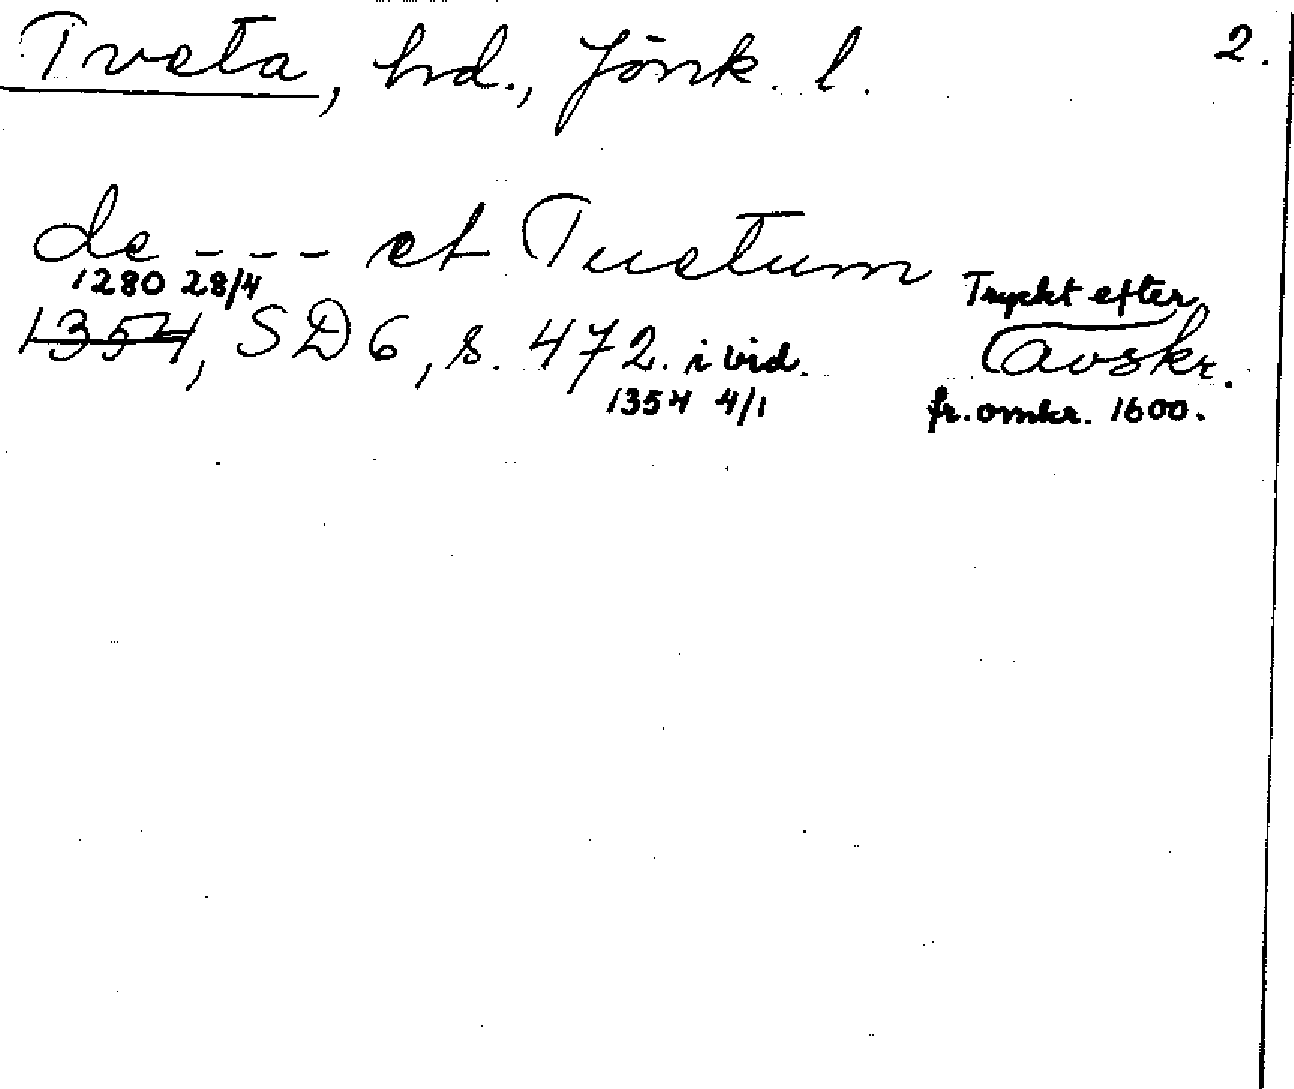 Tveta, hd., Jönk. l. 2.
de - - - et Tuetum
1280 28/4 Tryckt efter
1354, SD 6, s. 472. i vid. avskr.
1354 4/1 fr. omkr. 1600.